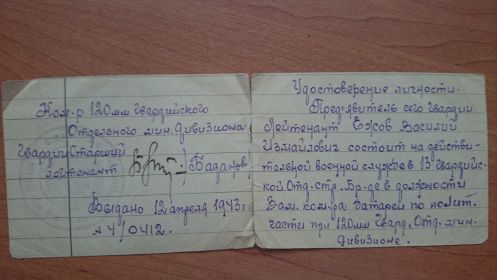 Ком-р 120мм Гвардийского
Отдельного мин. дивизиона
Гвардии Старший
лейтенант Баданов
Выдано 12 апреля 1943 г
№ 4/0412.
Удостоверение личности.
Пред'явитель сего Гвардии
Лейтенант Ежов Василий
Измайлович состоит на действи-
тельной военной службе в 13 Гвардейс-
кой Отд. стр. Бр-де в должности
Зам. ком-ра батареи по полит.
части при 120мм Гвард. Отд. мин.
дивизионе.